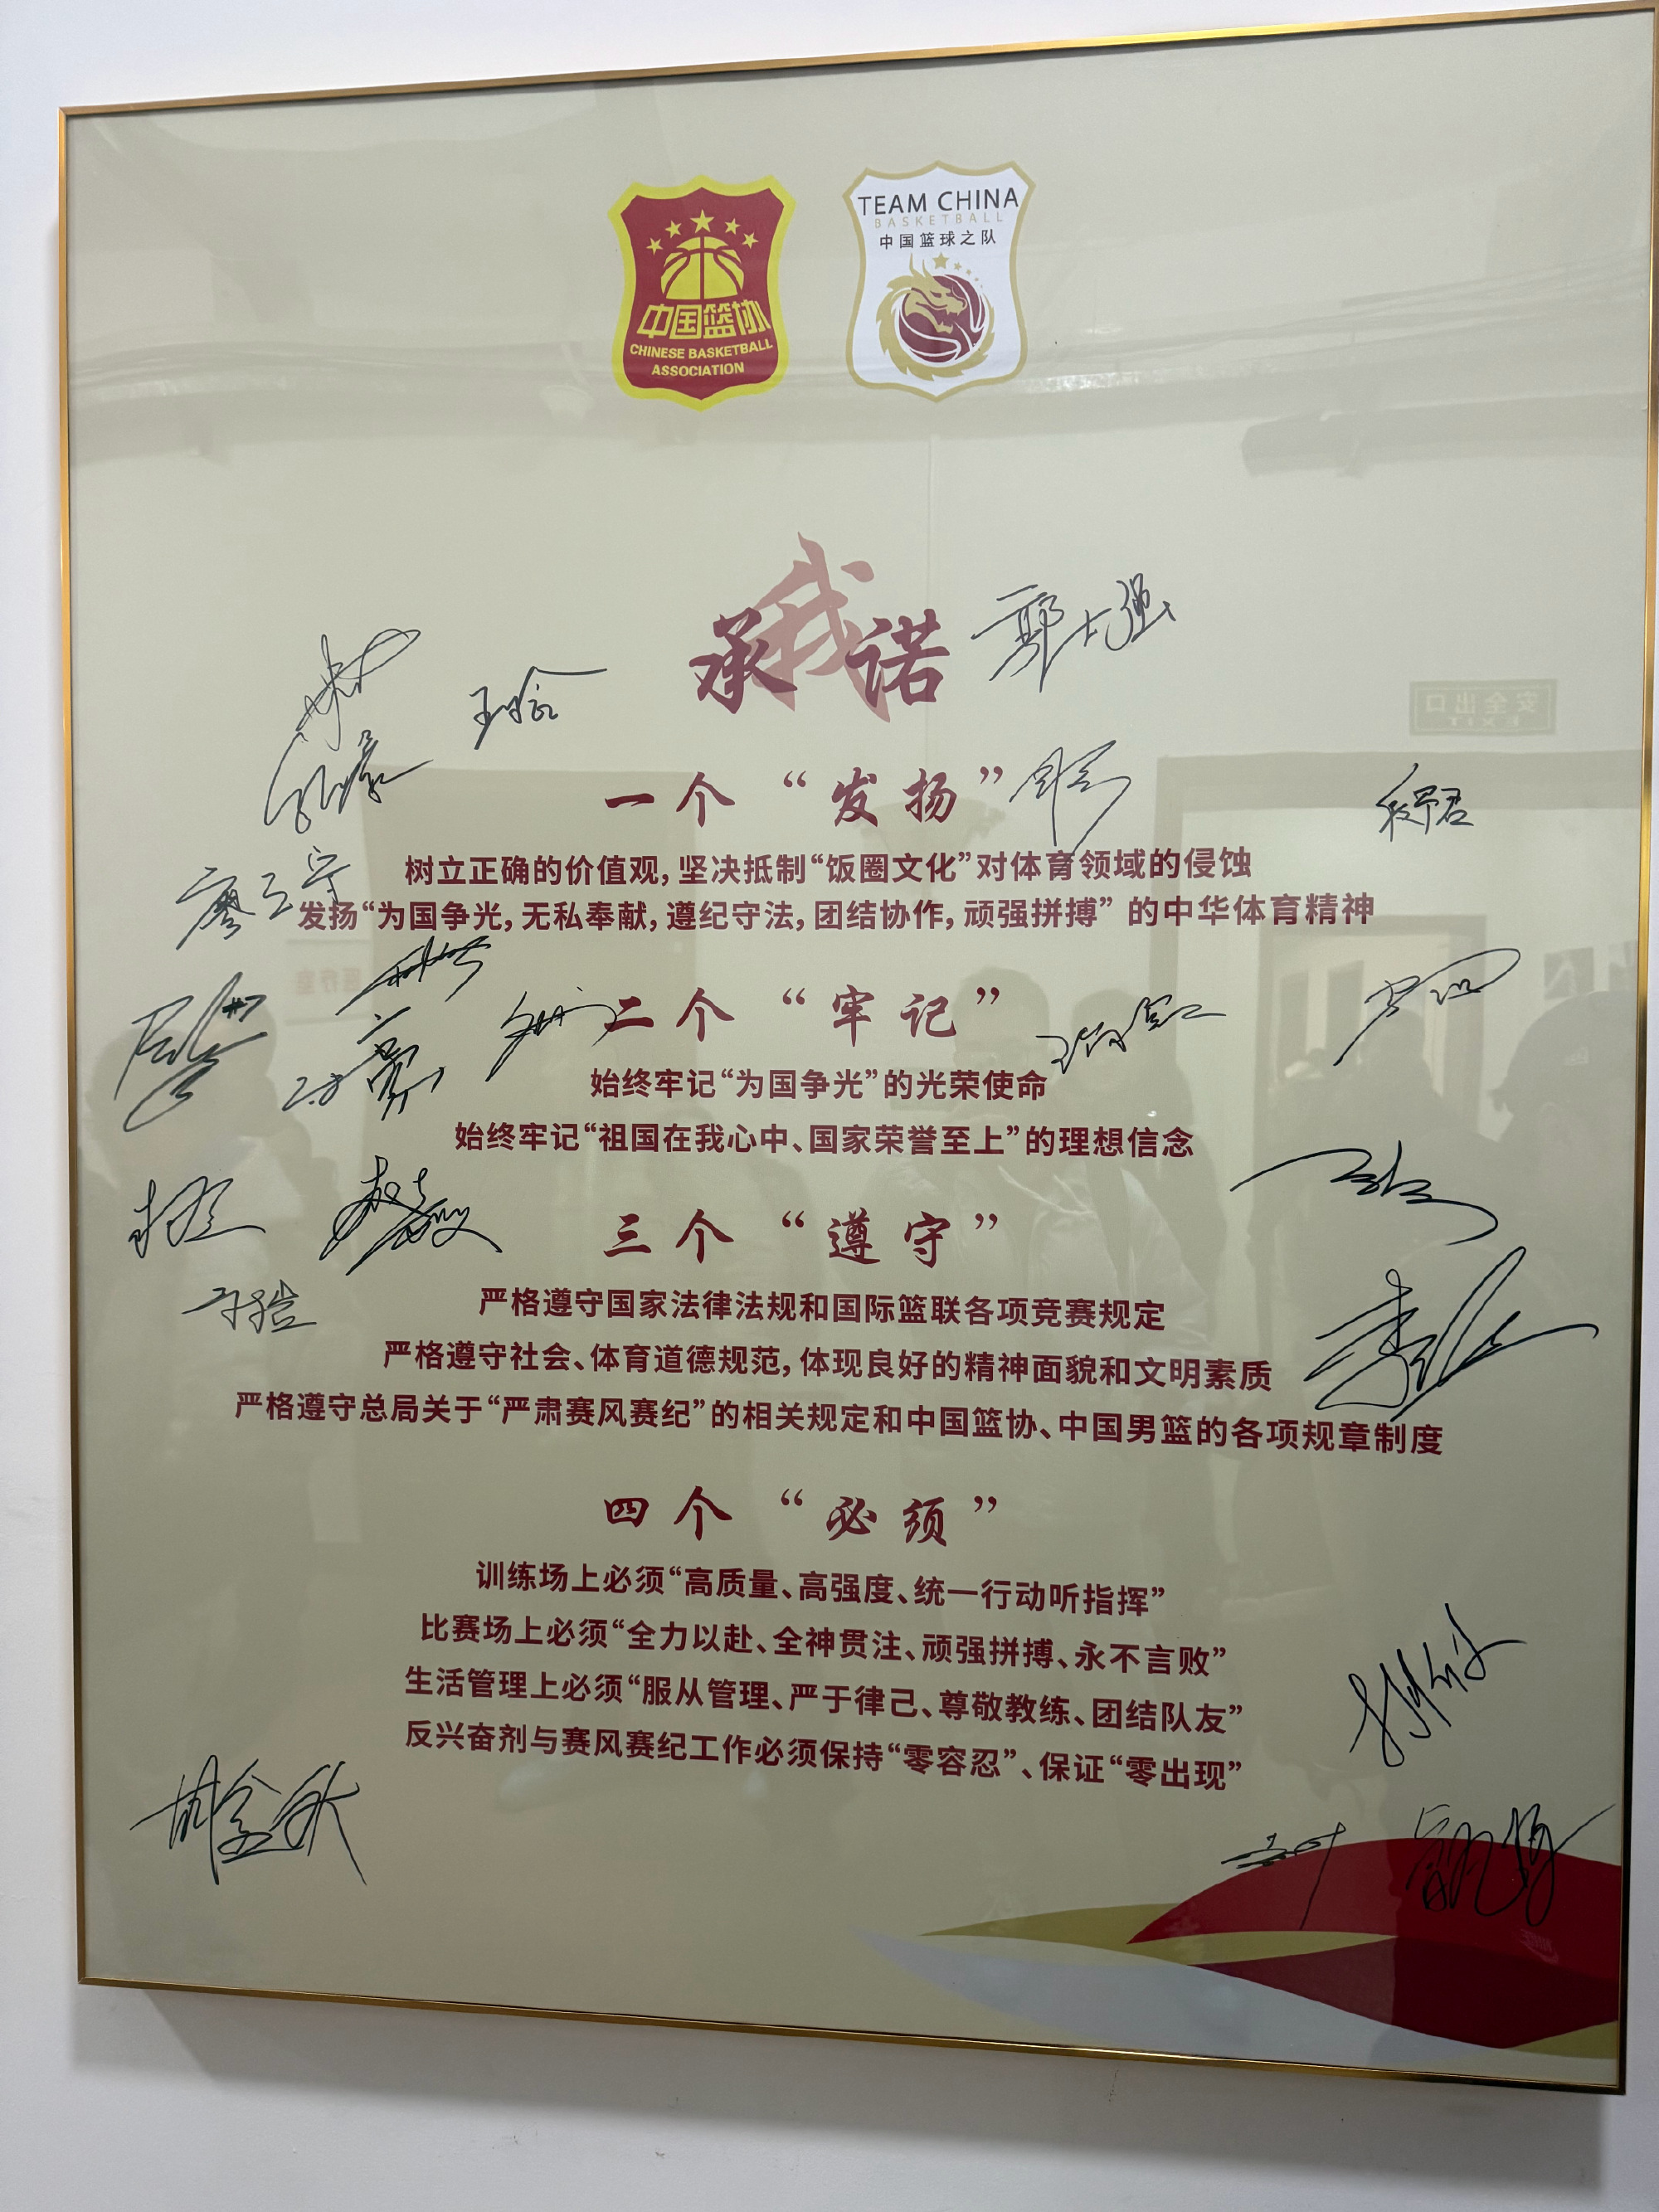 中国篮协
CHINESE BASKETBALL
ASSOCIATION
TEAM CHINA
BASKETBALL
中国篮球之队
我
承诺
一个“发扬”
树立正确的价值观,坚决抵制“饭圈文化”对体育领域的侵蚀
廖三宁
发扬“为国争光,无私奉献,遵纪守法,团结协作,顽强拼搏”的中华体育精神
#7
二个“牢记”
始终牢记“为国争光”的光荣使命
始终牢记“祖国在我心中、国家荣誉至上”的理想信念
三个“遵守”
严格遵守国家法律法规和国际篮联各项竞赛规定
严格遵守社会、体育道德规范,体现良好的精神面貌和文明素质
严格遵守总局关于“严肃赛风赛纪”的相关规定和中国篮协、中国男篮的各项规章制度
四个“必须”
训练场上必须“高质量、高强度、统一行动听指挥”
比赛场上必须“全力以赴、全神贯注、顽强拼搏、永不言败”
生活管理上必须“服从管理、严于律己、尊敬教练、团结队友”
反兴奋剂与赛风赛纪工作必须保持“零容忍”、保证“零出现”
胡金秋